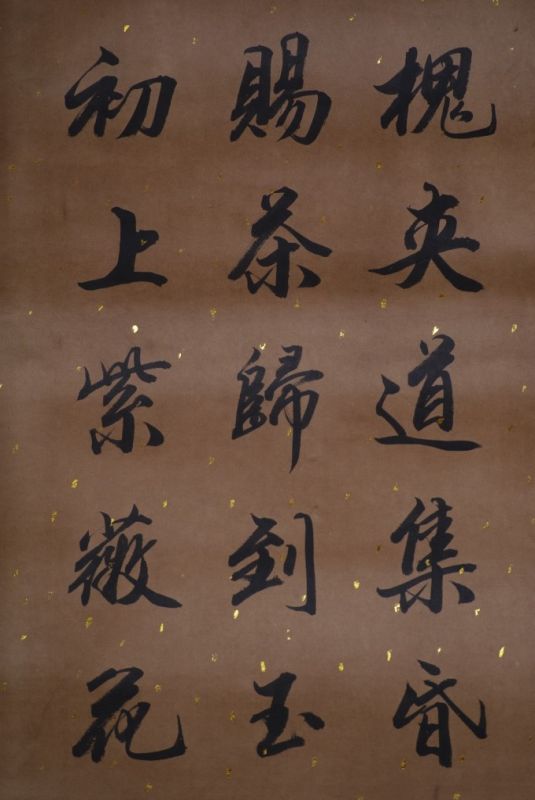 槐夾道集昏
賜茶歸到玉
初上紫薇花